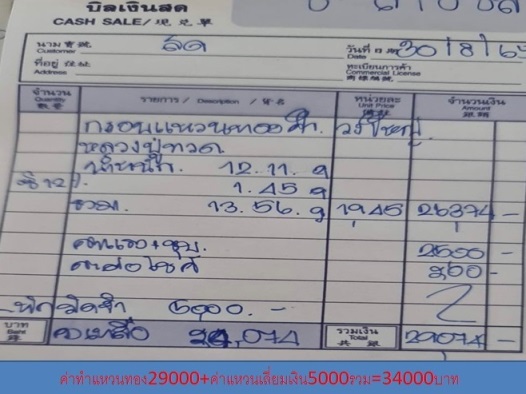 บิลเงินสด
CASH SALE/ 現兌單
นาม 寶號 สด
Customer
วันที่ 日期 30/8/65
Date
ที่อยู่ 住址
Address
ทะเบียนการค้า
Commercial License
商業牌號
จำนวน รายการ / Description / 貨名 หน่วยละ จำนวนเงิน
Quantity Unit Price Amount
數量 價銀 銀額
กรอบแหวนทอง
หลวงปู่ทวด
น้ำหนัก 12.11. g
1.45 g
รวม. 13.56. g 1945 26374 -
ค่าแรง+ชุบ. 2500 -
200 -
หักมัดจำ 5000. -
บาท คงเหลือ 24,074 รวมเงิน 29074 -
Baht Total
ค่าทำแหวนทอง29000+ค่าแหวนเลี่ยมเงิน5000รวม=34000บาท